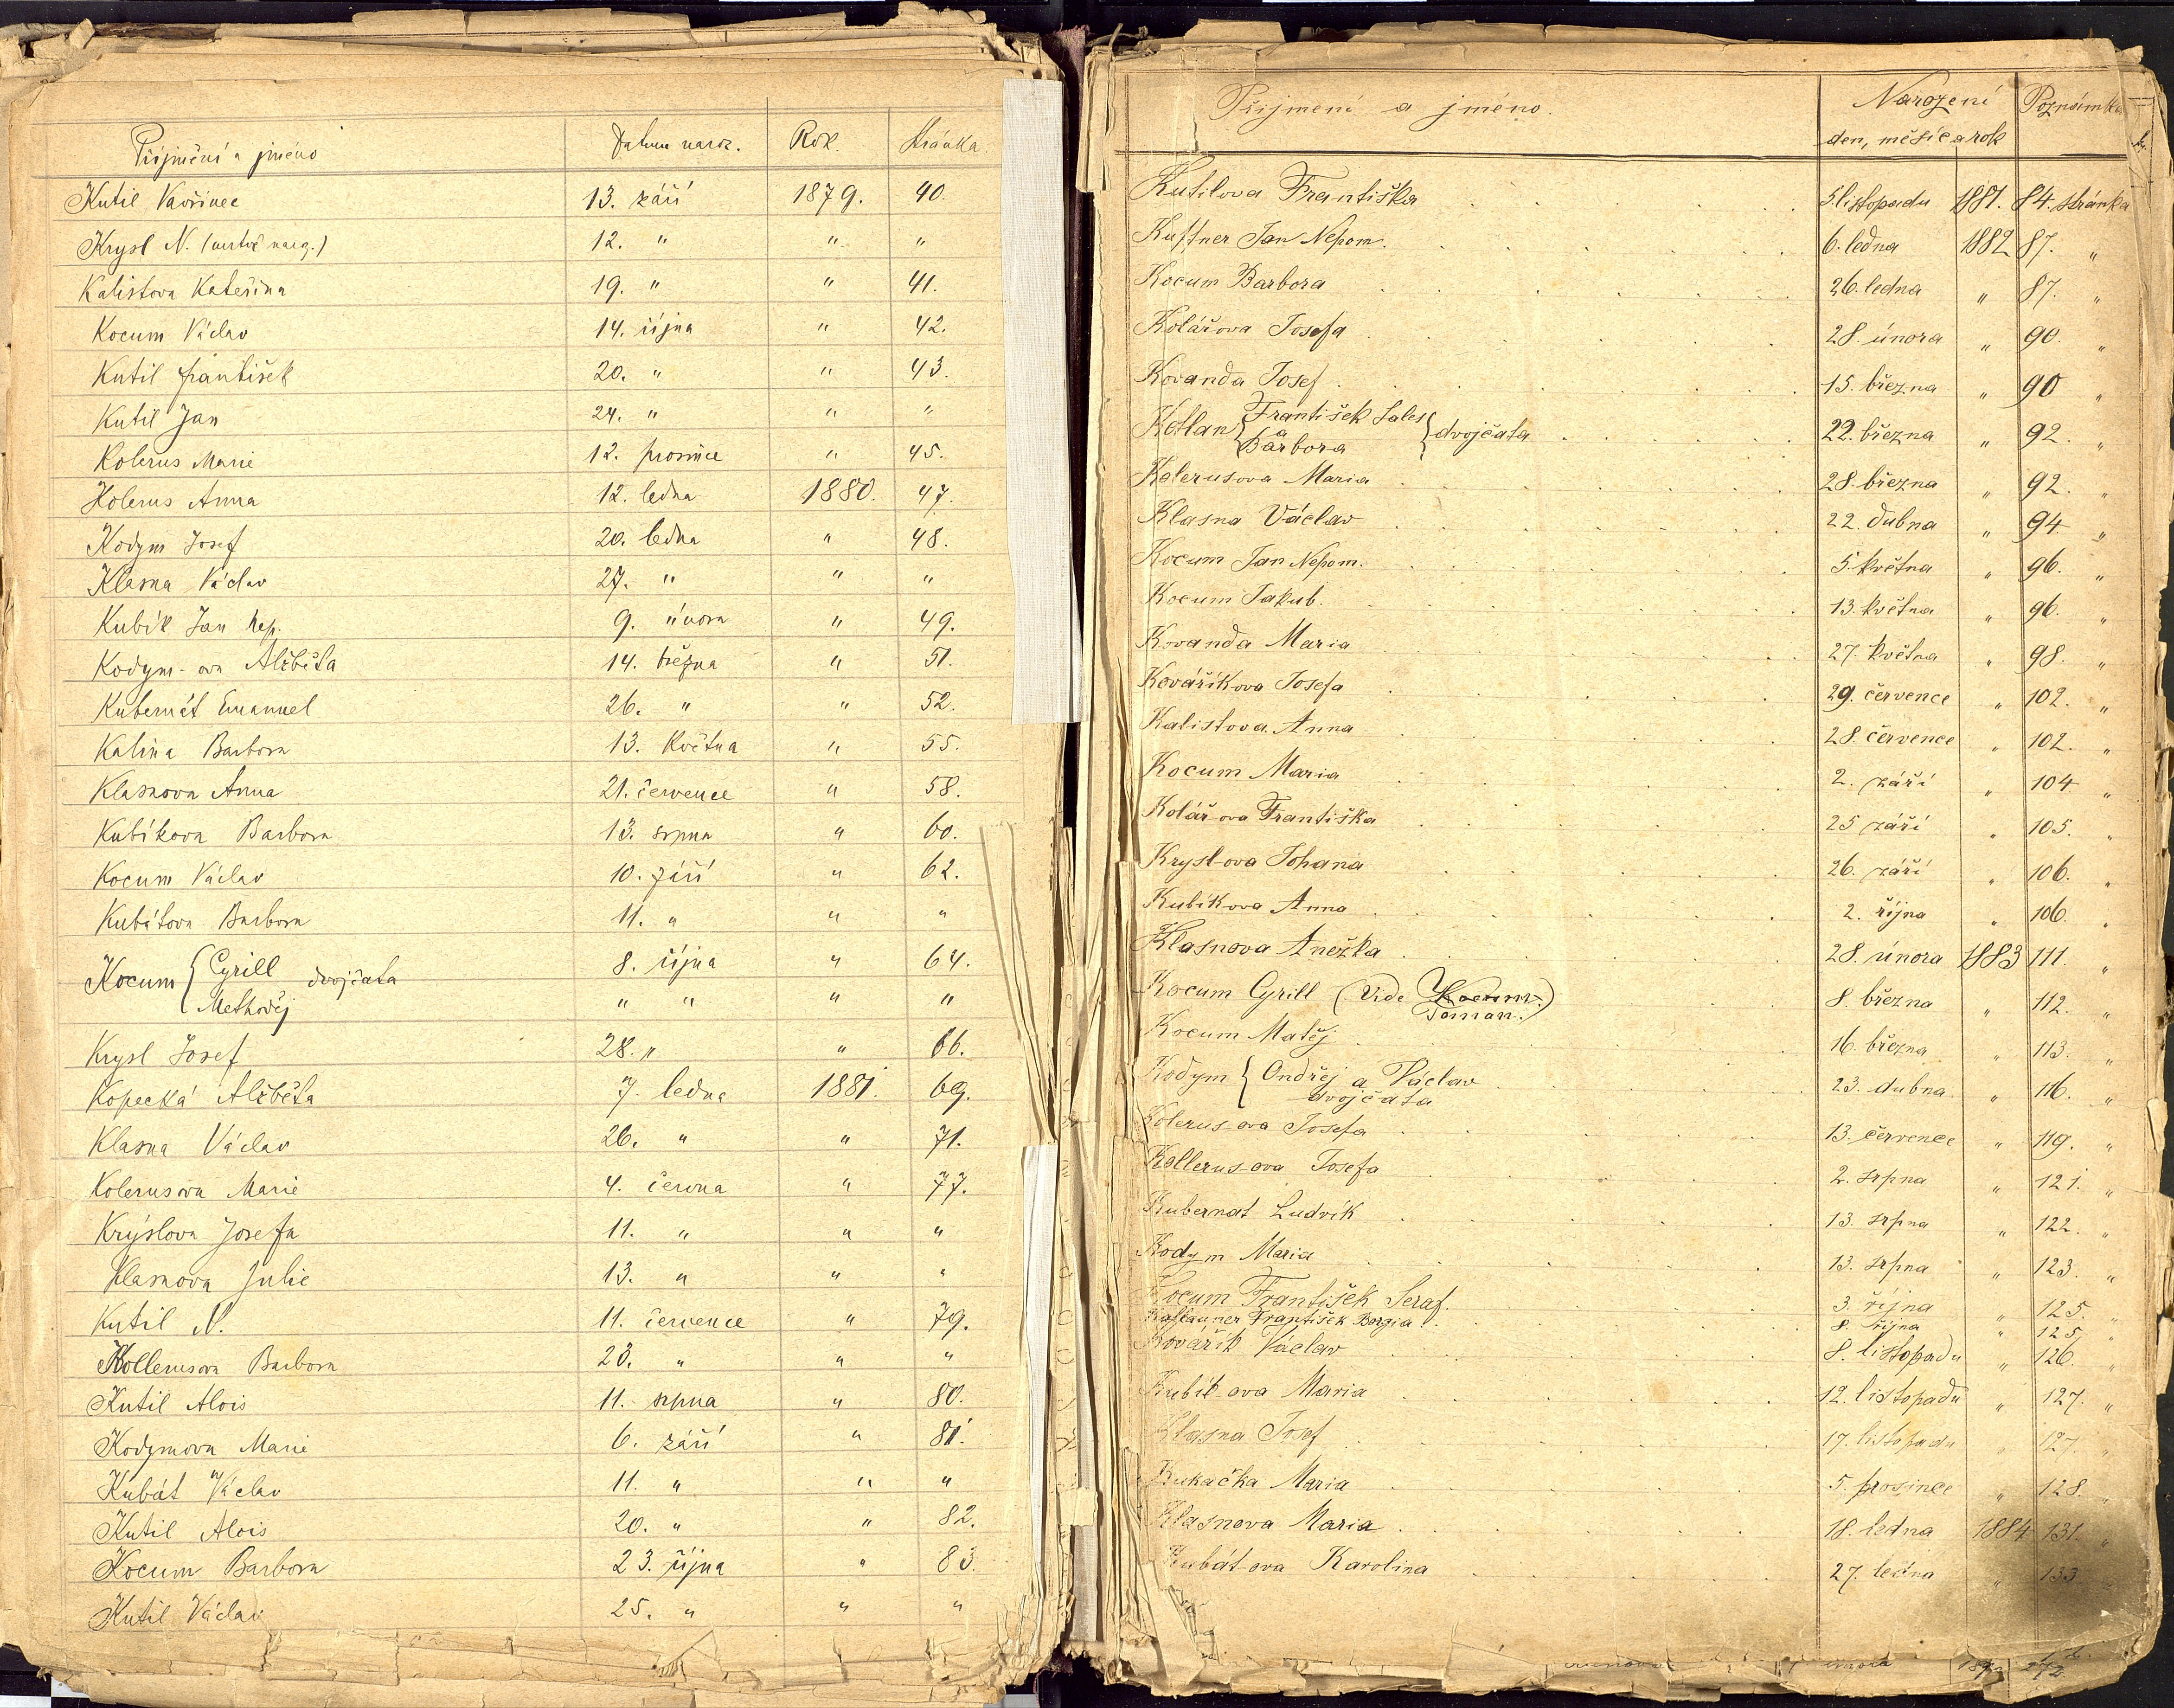 Příjmění a jméno Datum naroz. Rok. Stránka.
Kutil Vavřinec 13. září 1879. 40.
Krysl N. (mrtvě narog.) 12. " " "
Kalistova Kateřina 19. " " 41.
Kocum Václav 14. října " 42.
Kutil František 20. " " 43.
Kutil Jan 24. " " "
Kolerus Marie 12. prosince " 45.
Kolerus Anna 12. ledna 1880. 47.
Kodym Josef 20. ledna " 48.
Klasna Václav 27. " " "
Kubík Jan Nep. 9. února " 49.
Kodym-ova Alžběta 14. března " 51.
Kubernát Emanuel 26. " " 52.
Kalina Barbora 13. Května " 55.
Klasnova Anna 21. července " 58.
Kubíkova Barbora 13. srpna " 60.
Kocum Václav 10. září " 62.
Kubátova Barbora 11. " " "
Kocum { Cyrill dvojčata 8. října " 64.
Methoděj " " " "
Krysl Josef 28. " " 66.
Kopecká Alžběta 7. ledna 1881. 69.
Klasna Václav 26. " " 71.
Kolerusova Marie 4. června " 77.
Krýslova Josefa 11. " " "
Klasnova Julie 13. " " "
Kutil N. 11. července " 79.
Kollerusova Barbora 23. " " "
Kutil Alois 11. srpna " 80.
Kodymova Marie 6. září " 81.
Kubát Václav 11. " " "
Kutil Alois 20. " " 82.
Kocum Barbora 23. října " 83.
Kutil Václav 25. " " "
Příjmení a jméno. Narození Poznámka
den, měsíc a rok
Kutilova Františka 5. listopadu 1881. 84. stránka
Kuttner Jan Nepom. 6. ledna 1882 87. "
Kocum Barbora 26. ledna " 87. "
Kolářova Josefa 28. února " 90. "
Kovanda Josef 15. března " 90 "
Kotlan { František Sales a Barbora } dvojčata 22. března " 92. "
Kolerusova Maria 28. března " 92. "
Klasna Václav 22. dubna " 94. "
Kocum Jan Nepom. 5. května " 96. "
Kocum Jakub. 13. května " 96. "
Kovanda Maria 27. května " 98. "
Kovaříkova Josefa 29. července " 102. "
Kalistova Anna 28. července " 102. "
Kocum Maria 2. září " 104 "
Kolář-ova Františka 25 září " 105. "
Krysl-ova Johana 26. září " 106. "
Kubíkova Anna 2. října " 106. "
Klasnova Anežka 28. února 1883 111. "
Kocum Cyrill (Vide Kocum.) 8. března " 112. "
Toman.
Kocum Matěj 16. března " 113. "
Kodym { Ondřej a Václav 23. dubna " 116. "
dvojčata
Kolerus-ova Josefa 13. července " 119. "
Kollerus-ova Josefa 2. srpna " 121. "
Kubernat Ludvík 13. srpna " 122. "
Kodym Maria 13. srpna " 123. "
Kocum František Seraf. 3. října " 125. "
František Borgia 8. října " 125. "
Kovařík Václav 8. listopadu " 126. "
Kubík-ova Maria 12. listopadu " 127. "
Klasna Josef 17. listopadu " 127. "
Kukačka Maria 5. prosince " 128. "
Klasnova Maria 18. ledna 1884 131. "
Kubát-ova Karolina 27. ledna " 133 "